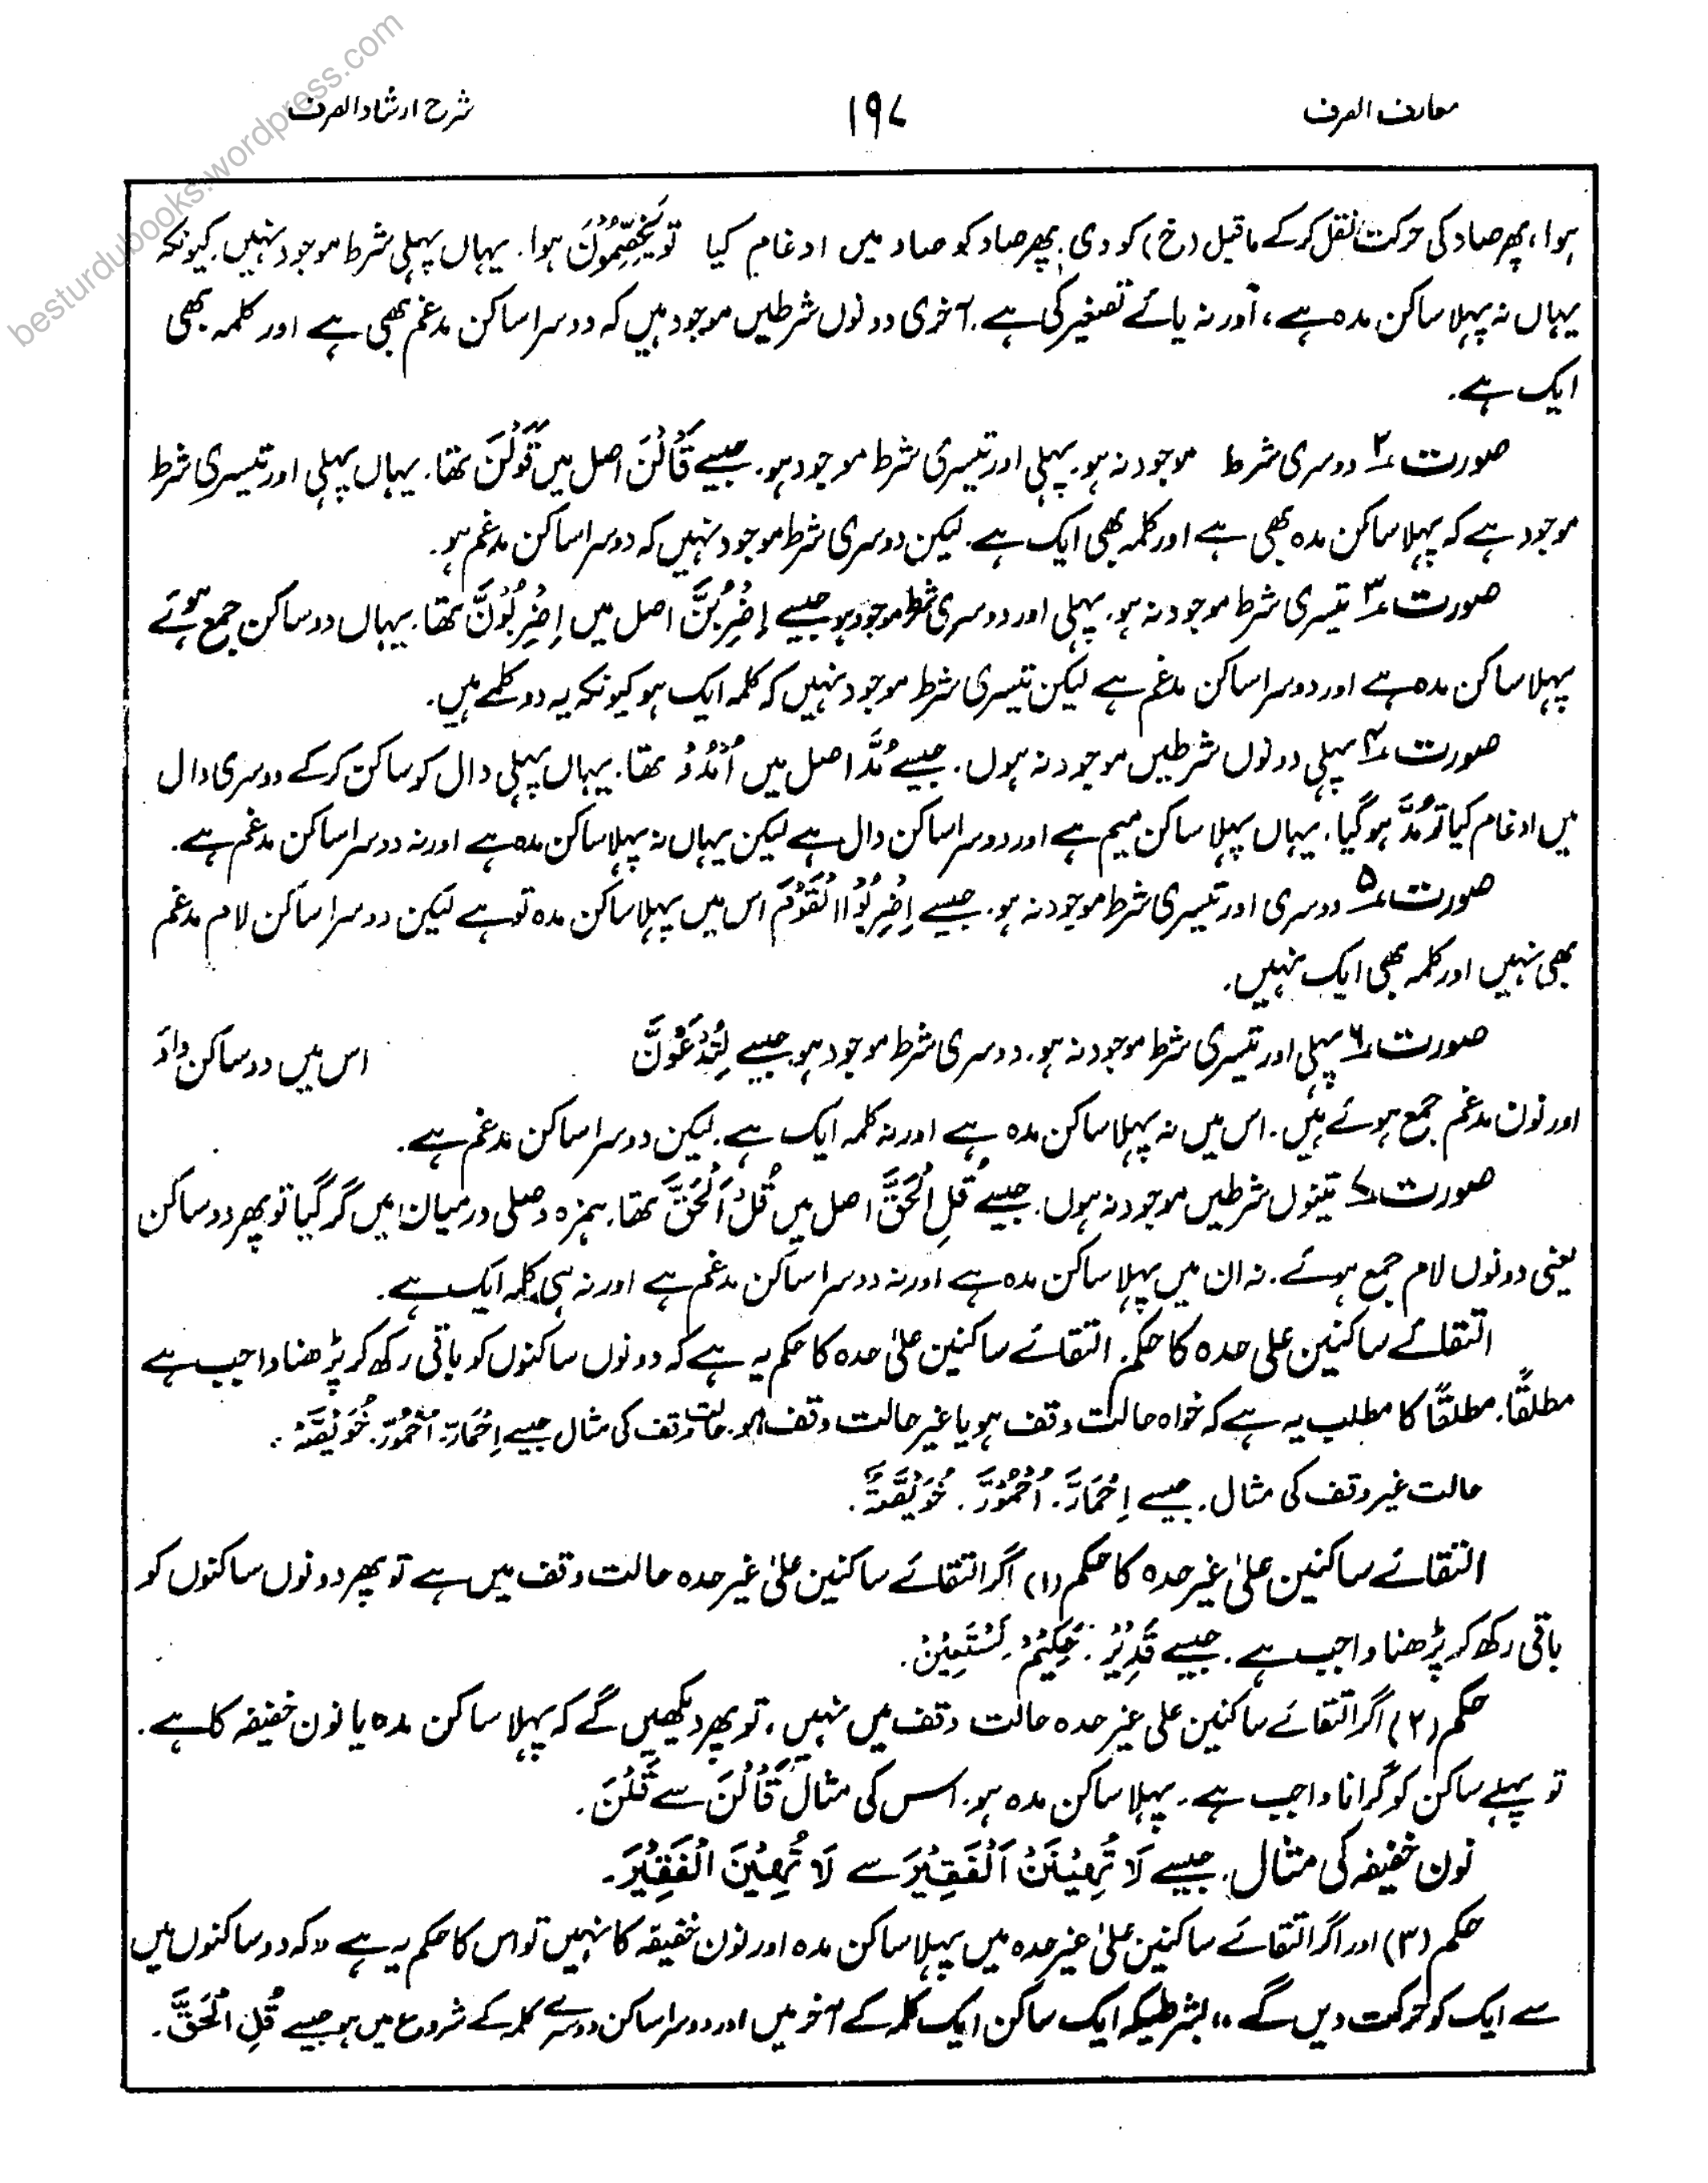 besturdubooks.wordpress.com
معارف الصرف ۱۹۷ شرح ارشاد الصرف
ہوا، پھر صاد کی حرکت نقل کر کے ماقبل (خ) کو دی، پھر صاد کو صاد میں ادغام کیا تو یَخِصِّمُوْنَ ہوا. یہاں پہلی شرط موجود نہیں. کیونکہ
یہاں نہ پہلا ساکن مدہ ہے، اور نہ یائے تصغیر کی ہے. آخری دونوں شرطیں موجود ہیں کہ دوسرا ساکن مدغم بھی ہے اور کلمہ بھی
ایک ہے.
صورت ۲ دوسری شرط موجود نہ ہو. پہلی اور تیسری شرط موجود ہو. جیسے قَالْنَ اصل میں قَوَلْنَ تھا. یہاں پہلی اور تیسری شرط
موجود ہے کہ پہلا ساکن مدہ بھی ہے اور کلمہ بھی ایک ہے. لیکن دوسری شرط موجود نہیں کہ دوسرا ساکن مدغم ہو.
صورت ۳ تیسری شرط موجود نہ ہو. پہلی اور دوسری شرط موجود ہو جیسے اِضْرِبُنَّ اصل میں اِضْرِبُوْنَّ تھا. یہاں دو ساکن جمع ہوئے
پہلا ساکن مدہ ہے اور دوسرا ساکن مدغم ہے لیکن تیسری شرط موجود نہیں کہ کلمہ ایک ہو کیونکہ یہ دو کلمے ہیں.
صورت ۴ پہلی دونوں شرطیں موجود نہ ہوں. جیسے مُدَّ اصل میں اُمْدُدْ تھا. یہاں پہلی دال کو ساکن کر کے دوسری دال
میں ادغام کیا تو مُدَّ ہو گیا. یہاں پہلا ساکن میم ہے اور دوسرا ساکن دال ہے لیکن یہاں نہ پہلا ساکن مدہ ہے اور نہ دوسرا ساکن مدغم ہے.
صورت ۵ دوسری اور تیسری شرط موجود نہ ہو. جیسے اِضْرِبُوْا الْقَوْمَ اس میں پہلا ساکن مدہ تو ہے لیکن دوسرا ساکن لام مدغم
بھی نہیں اور کلمہ بھی ایک نہیں.
صورت ۶ پہلی اور تیسری شرط موجود نہ ہو. دوسری شرط موجود ہو جیسے لِتُدْعَوُنَّ اس میں دو ساکن واؤ
اور نون مدغم جمع ہوئے ہیں. اس میں نہ پہلا ساکن مدہ ہے اور نہ کلمہ ایک ہے. لیکن دوسرا ساکن مدغم ہے.
صورت ۷ تینوں شرطیں موجود نہ ہوں. جیسے قُلِ الْحَقَّ اصل میں قُلْ اَلْحَقَّ تھا. ہمزہ وصلی درمیان میں گر گیا تو پھر دو ساکن
یعنی دونوں لام جمع ہوئے. نہ ان میں پہلا ساکن مدہ ہے اور نہ دوسرا ساکن مدغم ہے اور نہ ہی کلمہ ایک ہے.
التقائے ساکنین علی حدہ کا حکم. التقائے ساکنین علیٰ حدہ کا حکم یہ ہے کہ دونوں ساکنوں کو باقی رکھ کر پڑھنا واجب ہے
مطلقًا. مطلقًا کا مطلب یہ ہے کہ خواہ حالت وقف ہو یا غیر حالت وقف ہو. حالت وقف کی مثال جیسے اِحْمَارّْ. اُحْمُوْرّْ. خُوَیْصَّہْ.
حالت غیر وقف کی مثال. جیسے اِحْمَارَّ. اُحْمُوْرَّ. خُوَیْصَّۃٌ.
التقائے ساکنین علیٰ غیر حدہ کا حکم (۱) اگر التقائے ساکنین علیٰ غیر حدہ حالت وقف میں ہے تو پھر دونوں ساکنوں کو
باقی رکھ کر پڑھنا واجب ہے. جیسے قَدِیْرْ. حَکِیْمْ. نَسْتَعِیْنْ.
حکم (۲) اگر التقائے ساکنین علی غیر حدہ حالت وقف میں نہیں، تو پھر دیکھیں گے کہ پہلا ساکن مدہ یا نون خفیفہ کا ہے.
تو پہلے ساکن کو گرانا واجب ہے. پہلا ساکن مدہ ہو. اس کی مثال قَالْنَ سے قَلْنَ.
نون خفیفہ کی مثال. جیسے لَا تُھِیْنَنْ اَلْفَقِیْرَ سے لَا تُھِیْنَ الْفَقِیْرَ.
حکم (۳) اور اگر التقائے ساکنین علیٰ غیر حدہ میں پہلا ساکن مدہ اور نون خفیفہ کا نہیں تو اس کا حکم یہ ہے "کہ دو ساکنوں میں
سے ایک کو حرکت دیں گے" بشرطیکہ ایک ساکن ایک کلمہ کے آخر میں اور دوسرا ساکن دوسرے کلمہ کے شروع میں ہو جیسے قُلِ الْحَقَّ.